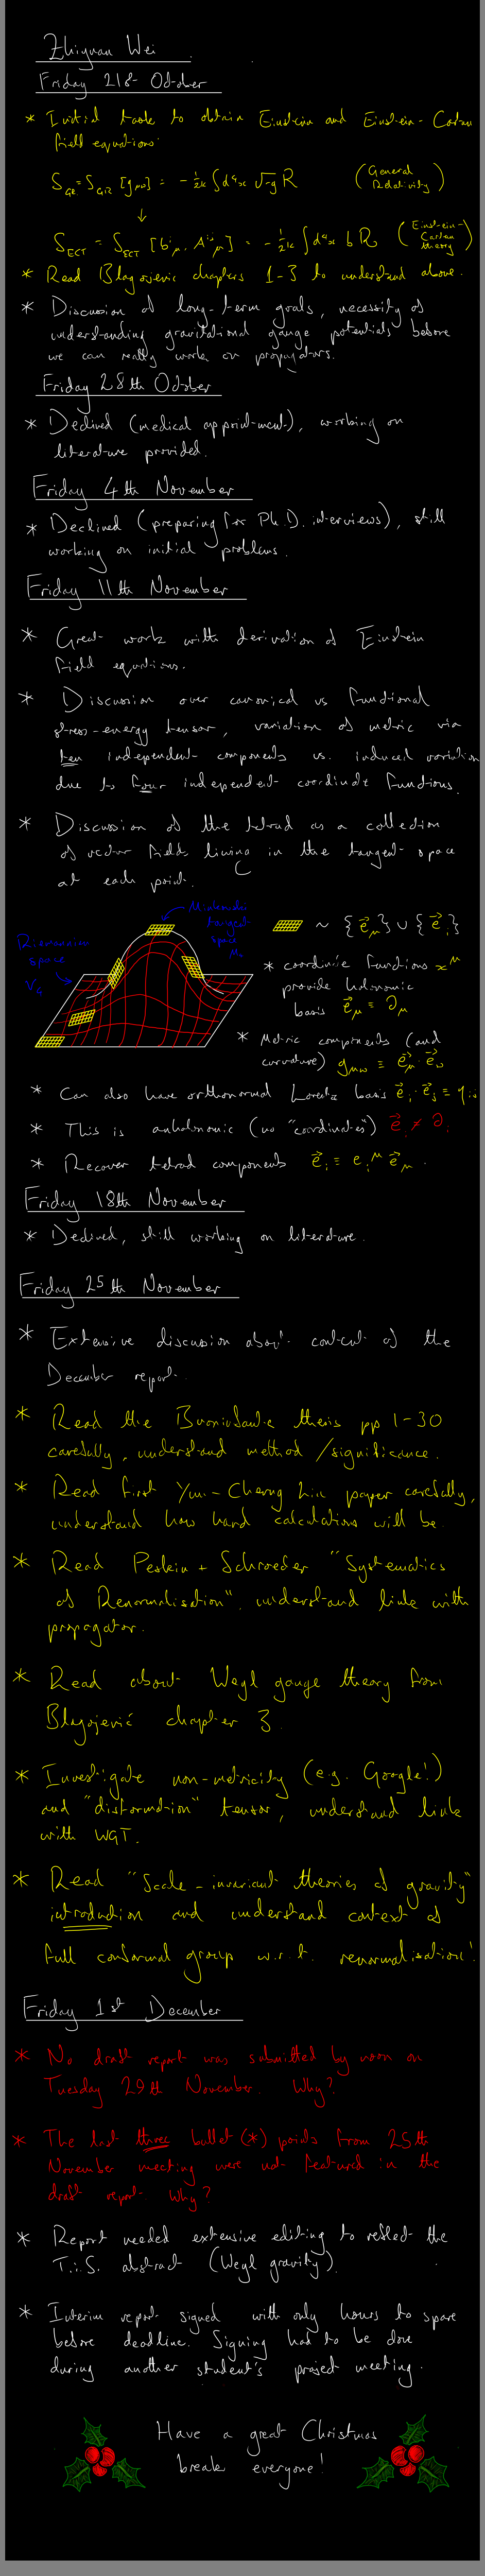 Zhiyuan Wei
Friday 21st October
* Initial task to obtain Einstein and Einstein-Cartan
field equations.
S_GR = S_GR [g_μν] = -1/2κ ∫d⁴x √-g R (General
Relativity)
↓
S_ECT = S_ECT [b^i_μ, A^ij_μ] = -1/2κ ∫d⁴x b R (Einstein-
Cartan
theory)
* Read Blagojevic chapters 1-3 to understand above.
* Discussion of long-term goals, necessity of
understanding gravitational gauge potentials before
we can really work on propagators.
Friday 28th October
* Declined (medical appointment), working on
literature provided.
Friday 4th November
* Declined (preparing for Ph.D. interviews), still
working on initial problems.
Friday 11th November
* Great work with derivation of Einstein
field equations.
* Discussion over canonical vs functional
stress-energy tensor, variation of metric via
ten independent components vs. induced variation
due to four independent coordinate functions.
* Discussion of the tetrad as a collection
of vector fields living in the tangent space
at each point.
Minkowski
tangent
space
M₄
Riemannian
space
V₄
~ {e⃗_μ} ∪ {e⃗_i}
* coordinate functions x^μ
provide holonomic
basis e⃗_μ ≡ ∂_μ
* Metric components (and
curvature) g_μν ≡ e⃗_μ · e⃗_ν
* Can also have orthonormal Lorentz basis e⃗_i · e⃗_j = η_ij
* This is anholonomic (no "coordinates") e⃗_i ≠ ∂_i
* Recover tetrad components e⃗_i ≡ e_i^μ e⃗_μ.
Friday 18th November
* Declined, still working on literature.
Friday 25th November
* Extensive discussion about content of the
December report.
* Read the thesis pp 1-30
carefully, understand method/significance.
* Read first Yun-Cherng Lin paper carefully,
understand how hard calculations will be
* Read Peskin + Schroeder "Systematics
of Renormalisation", understand link with
propagator.
* Read about Weyl gauge theory from
Blagojević chapter 3.
* Investigate non-metricity (e.g. Google!)
and "disformation" tensor, understand link
with WGT.
* Read "Scale-invariant theories of gravity"
introduction and understand context of
full conformal group w.r.t. renormalisation!
Friday 1st December
* No draft report was submitted by noon on
Tuesday 29th November. Why?
* The last three bullet (*) points from 25th
November meeting were not featured in the
draft report. Why?
* Report needed extensive editing to reflect the
T.i.S. abstract (Weyl gravity).
* Interim report signed with only hours to spare
before deadline. Signing had to be done
during another student's project meeting.
Have a great Christmas
break everyone!